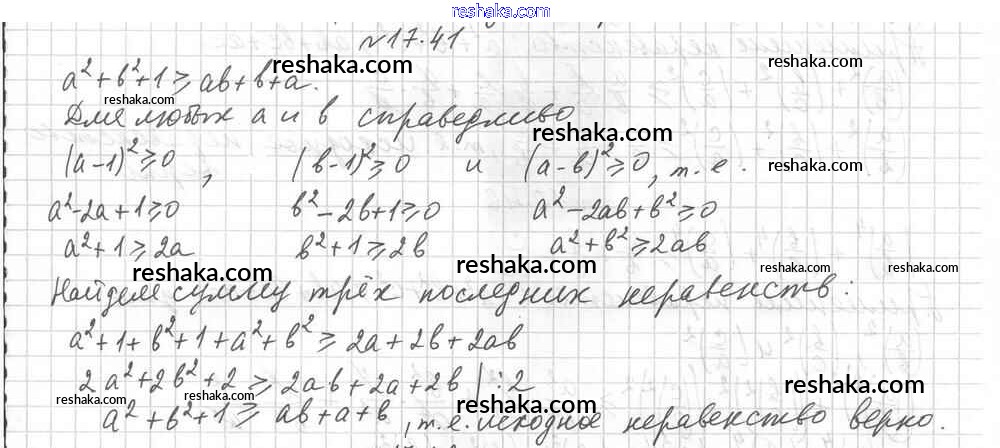 reshaka.com
№17.41
a²+b²+1≥ab+b+a.
reshaka.com
reshaka.com
reshaka.com
Для любых a и b справедливо
reshaka.com
(a-1)²≥0, (b-1)²≥0 и (a-b)²≥0, т.е.
reshaka.com
a²-2a+1≥0 b²-2b+1≥0 a²-2ab+b²≥0
a²+1≥2a b²+1≥2b a²+b²≥2ab
reshaka.com reshaka.com reshaka.com reshaka.com
Найдем сумму трёх последних неравенств:
a²+1+b²+1+a²+b²≥2a+2b+2ab
2a²+2b²+2≥2ab+2a+2b |:2
reshaka.com reshaka.com reshaka.com reshaka.com
a²+b²+1≥ab+a+b, т.е. исходное неравенство верно.